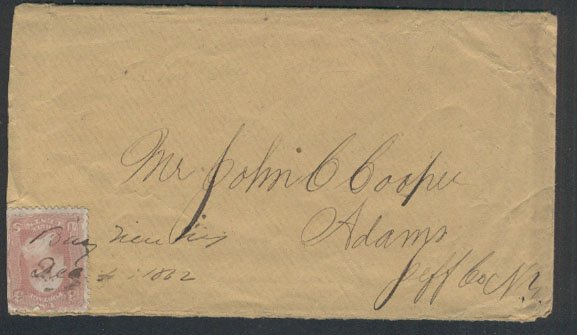 Mr John C Cooper
Adams
Jeff Co N.Y.
Bay View
Dec 4 1862